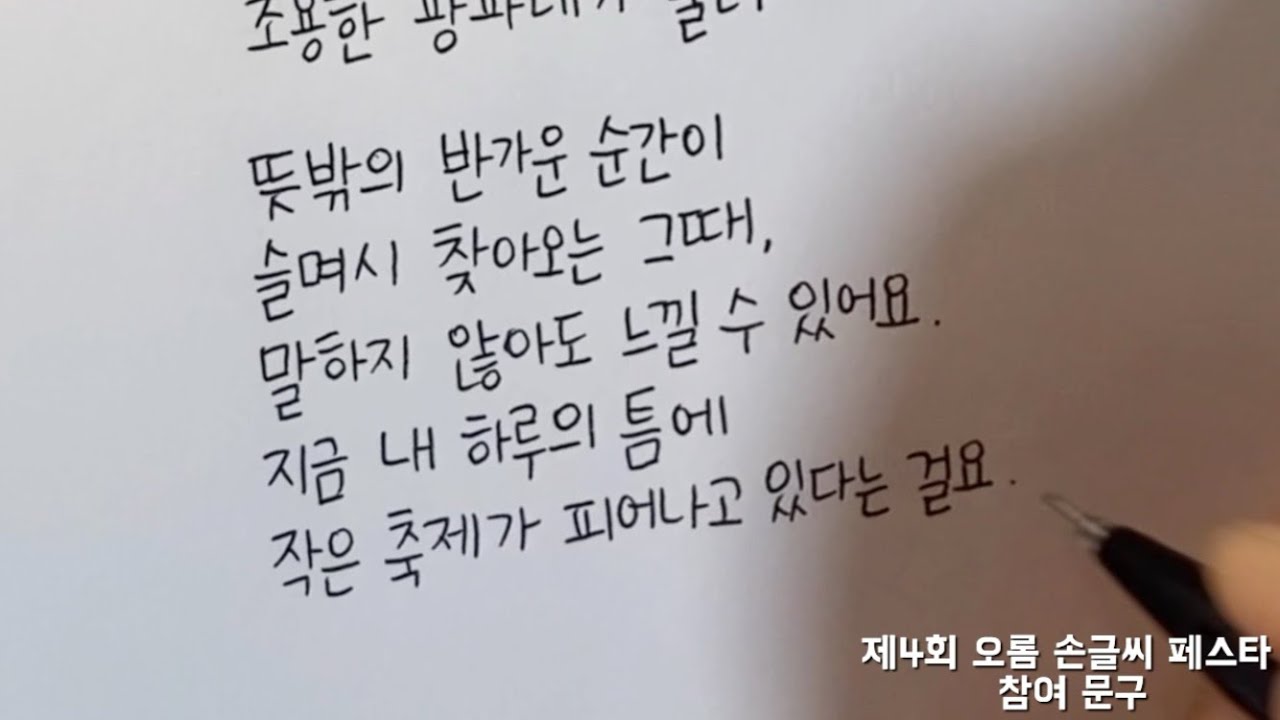 조용한 팡파레가
뜻밖의 반가운 순간이
슬며시 찾아오는 그때,
말하지 않아도 느낄 수 있어요.
지금 내 하루의 틈에
작은 축제가 피어나고 있다는 걸요.
제4회 오롬 손글씨 페스타
참여 문구